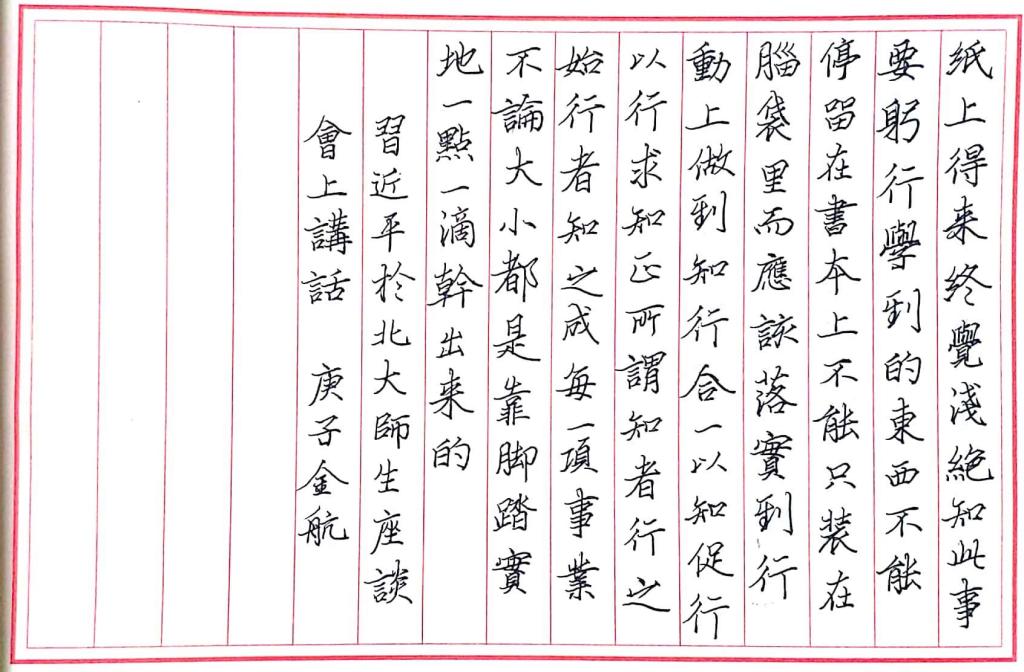 纸上得来终覺淺絶知此事
要躬行學到的東西不能
停留在書本上不能只装在
腦袋里而應該落實到行
動上做到知行合一以知促行
以行求知正所謂知者行之
始行者知之成每一項事業
不論大小都是靠脚踏實
地一點一滴幹出来的
習近平於北大師生座談
會上講話 庚子金航